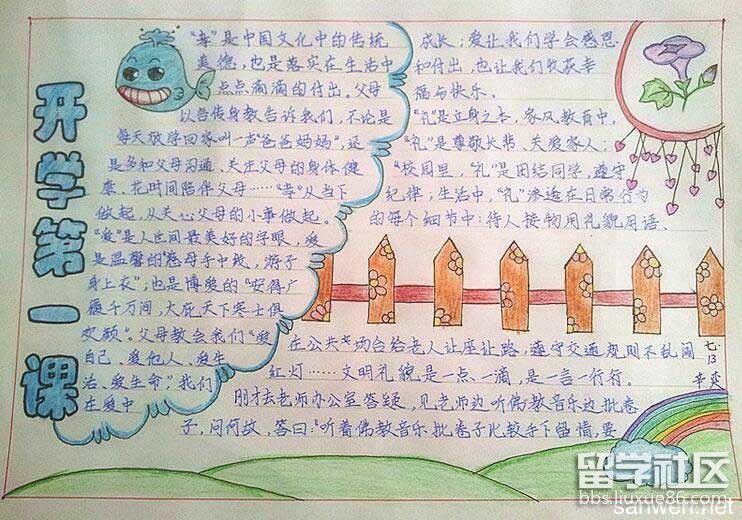 开学第一课
"孝"是中国文化中的传统
美德，也是落实在生活中
点点滴滴的付出。父母
以言传身教告诉我们，不论是
每天放学回家叫一声"爸爸妈妈"，还
是多和父母沟通、关注父母的身体健
康、花时间陪伴父母……"孝"从当下
做起，从关心父母的小事做起。
"爱"是人世间最美好的字眼，爱
是温馨的"慈母手中线，游子
身上衣"，也是博爱的"安得广
厦千万间，大庇天下寒士俱
欢颜"。父母教会我们"爱
自己、爱他人、爱生
活、爱生命"，我们
在爱中
成长；爱让我们学会感恩
和付出，也让我们收获幸
福与快乐。
"礼"是立身之本，家风教育中，
"礼"是尊敬长辈、关爱家人；
"校园里，"礼"是团结同学，遵守
纪律；生活中，"礼"渗透在日常行为
的每个细节中：待人接物用礼貌用语、
在公共场合给老人让座让路，遵守交通规则不乱闯
红灯……文明礼貌是一点一滴，是一言一行。
刚才去老师办公室答疑，见老师边听佛教音乐边批卷
子，问何故，答曰："听着佛教音乐批卷子比较手下留情，要
七.13
留学社区
bbs.liuxue86.com
sanwen.net